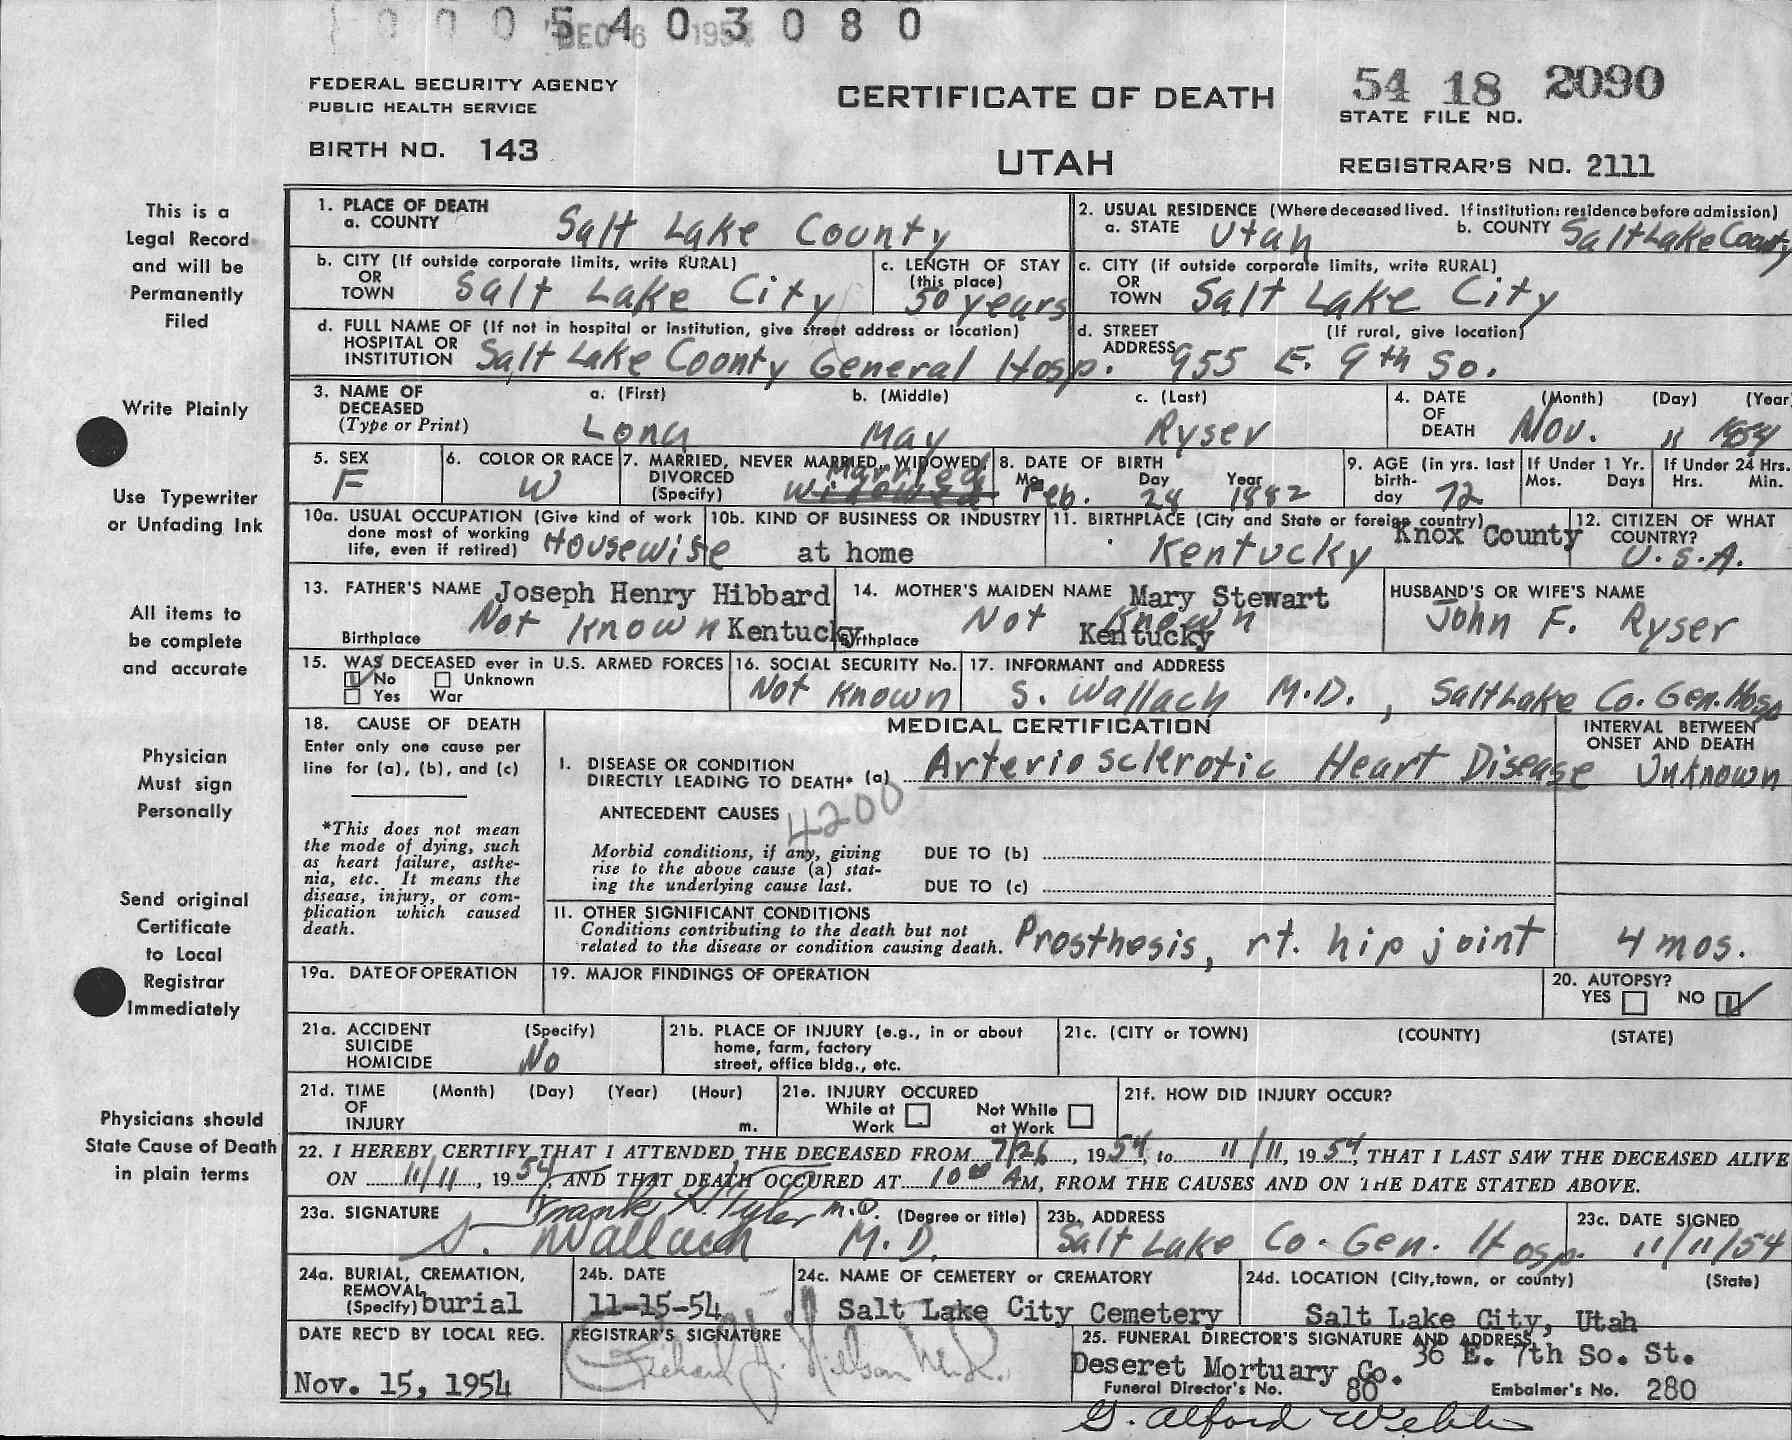 0005403080
DEC 6 1954
FEDERAL SECURITY AGENCY
PUBLIC HEALTH SERVICE
BIRTH NO. 143
CERTIFICATE OF DEATH
UTAH
54 18 2090
STATE FILE NO.
REGISTRAR'S NO. 2111
This is a
Legal Record
and will be
Permanently
Filed
Write Plainly
Use Typewriter
or Unfading Ink
All items to
be complete
and accurate
Physician
Must sign
Personally
Send original
Certificate
to Local
Registrar
Immediately
Physicians should
State Cause of Death
in plain terms
1. PLACE OF DEATH
a. COUNTY Salt Lake County
2. USUAL RESIDENCE (Where deceased lived. If institution: residence before admission)
a. STATE Utah b. COUNTY Salt Lake County
b. CITY (If outside corporate limits, write RURAL)
OR
TOWN Salt Lake City
c. LENGTH OF STAY
(this place)
50 years
c. CITY (if outside corporate limits, write RURAL)
OR
TOWN Salt Lake City
d. FULL NAME OF (If not in hospital or institution, give street address or location)
HOSPITAL OR
INSTITUTION Salt Lake County General Hosp.
d. STREET (If rural, give location)
ADDRESS 955 E. 9th So.
3. NAME OF a. (First) b. (Middle) c. (Last)
DECEASED
(Type or Print) Lona May Ryser
4. DATE (Month) (Day) (Year
OF
DEATH Nov. 11 1954
5. SEX
F
6. COLOR OR RACE
W
7. MARRIED, NEVER MARRIED, WIDOWED,
DIVORCED Married
(Specify) Widowed
8. DATE OF BIRTH
Mo. Day Year
Feb. 24 1882
9. AGE (in yrs. last
birth-
day 72
If Under 1 Yr.
Mos. Days
If Under 24 Hrs.
Hrs. Min.
10a. USUAL OCCUPATION (Give kind of work
done most of working
life, even if retired) Housewife
10b. KIND OF BUSINESS OR INDUSTRY
at home
11. BIRTHPLACE (City and State or foreign country)
Knox County
Kentucky
12. CITIZEN OF WHAT
COUNTRY?
U.S.A.
13. FATHER'S NAME Joseph Henry Hibbard
Not Known
Birthplace Kentucky
14. MOTHER'S MAIDEN NAME Mary Stewart
Not Known
Birthplace Kentucky
HUSBAND'S OR WIFE'S NAME
John F. Ryser
15. WAS DECEASED ever in U.S. ARMED FORCES
No Unknown
Yes War
16. SOCIAL SECURITY No.
Not Known
17. INFORMANT and ADDRESS
S. Wallach M.D., Salt Lake Co. Gen. Hosp
18. CAUSE OF DEATH
Enter only one cause per
line for (a), (b), and (c)
*This does not mean
the mode of dying, such
as heart failure, asthe-
nia, etc. It means the
disease, injury, or com-
plication which caused
death.
MEDICAL CERTIFICATION
INTERVAL BETWEEN
ONSET AND DEATH
I. DISEASE OR CONDITION
DIRECTLY LEADING TO DEATH* (a) Arteriosclerotic Heart Disease Unknown
ANTECEDENT CAUSES 4200
Morbid conditions, if any, giving
rise to the above cause (a) stat-
ing the underlying cause last.
DUE TO (b)
DUE TO (c)
II. OTHER SIGNIFICANT CONDITIONS
Conditions contributing to the death but not
related to the disease or condition causing death. Prosthesis, rt. hip joint 4 mos.
19a. DATE OF OPERATION
19. MAJOR FINDINGS OF OPERATION
20. AUTOPSY?
YES NO
21a. ACCIDENT (Specify)
SUICIDE
HOMICIDE No
21b. PLACE OF INJURY (e.g., in or about
home, farm, factory
street, office bldg., etc.
21c. (CITY or TOWN) (COUNTY) (STATE)
21d. TIME (Month) (Day) (Year) (Hour)
OF
INJURY m.
21e. INJURY OCCURED
While at Not While
Work at Work
21f. HOW DID INJURY OCCUR?
22. I HEREBY CERTIFY THAT I ATTENDED THE DECEASED FROM 7/26, 1954, to 11/11, 1954, THAT I LAST SAW THE DECEASED ALIVE
ON 11/11, 1954, AND THAT DEATH OCCURED AT 10 00 AM, FROM THE CAUSES AND ON THE DATE STATED ABOVE.
23a. SIGNATURE Frank H. Tyler M.D. (Degree or title)
S. Wallach M.D.
23b. ADDRESS
Salt Lake Co. Gen. Hosp.
23c. DATE SIGNED
11/11/54
24a. BURIAL, CREMATION,
REMOVAL
(Specify) burial
24b. DATE
11-15-54
24c. NAME OF CEMETERY or CREMATORY
Salt Lake City Cemetery
24d. LOCATION (City, town, or county) (State)
Salt Lake City, Utah
DATE REC'D BY LOCAL REG.
Nov. 15, 1954
REGISTRAR'S SIGNATURE
Richard J. Nielson M.D.
25. FUNERAL DIRECTOR'S SIGNATURE AND ADDRESS
36 E. 7th So. St.
Deseret Mortuary Co.
Funeral Director's No. 80 Embalmer's No. 280
G. Alford Webb